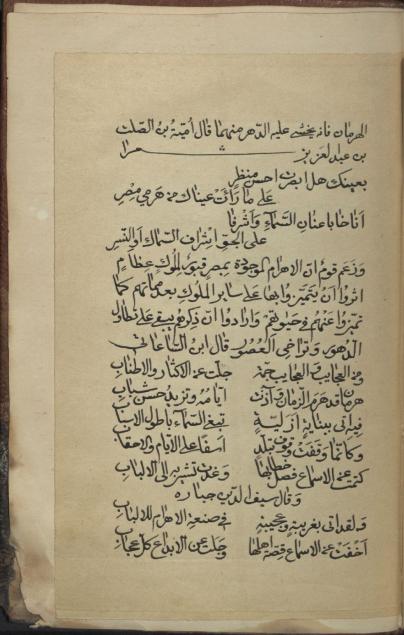 الهرمان فانه يخشى عليه الدهر منهما قال امية بن الصلت
بن عبد العزيز شعرا
بعينك هل ابصرت احسن منظر
على ما رأت عيناك من هرمي مصر
انافا باعنان السماء واشرفا
على الجو اشراف السماك او النسر
وزعم قوم ان الاهرام الموجودة بمصر قبور لملوك عظام
اثروا ان يتميزوا بها على ساير الملوك بعد مماتهم كما
تميزوا عنهم في حيوتهم وارادوا ان ذكرهم يبقى على تطاول
الدهور وتراخى العصور قال ابن الساعاتي
ومن العجايب والعجايب جمة جلت عن الاكثار والاطناب
هرمان قد هرم الزمان وادبرت ايامه وتزيد حسن شباب
لله اي بناية ازلية تبغى السماء باطول الاسباب
وكانما وقفت وقوف تبلد اسفا على الايام والاحقاب
كتمت عن الاسماع فصل خطابها وغدت تشير به الى الالباب
وقال سيف الدين جباره
ولقد اتى بغريبة وعجيبة في صنعة الاهرام للالباب
اخفت عن الاسماع قصة اهلها وجلت عن الابداع كل عجاب